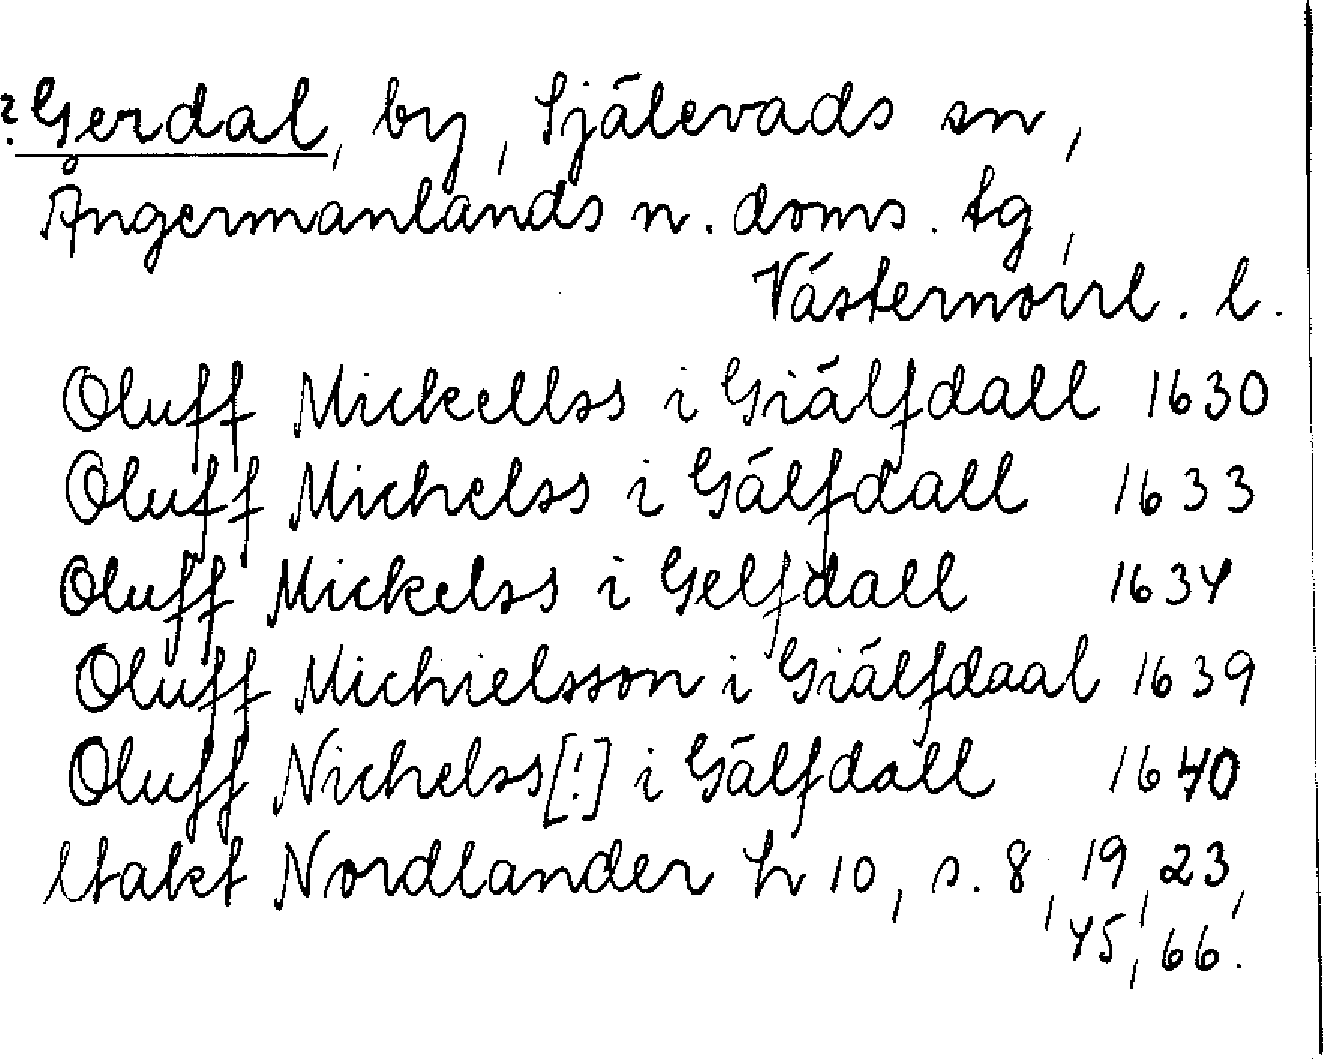 ? Gerdal, by, Själevads sn,
Ångermanlands n. doms. tg,
Västernorrl. l.
Oluff Mickellss i Giälfdall 1630
Oluff Michelss i Gälfdall 1633
Oluff Mickelss i Gelfdall 1634
Oluff Michielsson i Giälfdaal 1639
Oluff Nichelss[!] i Gälfdall 1640
Utakt Nordlander h 10, s. 8, 19, 23,
45, 66.